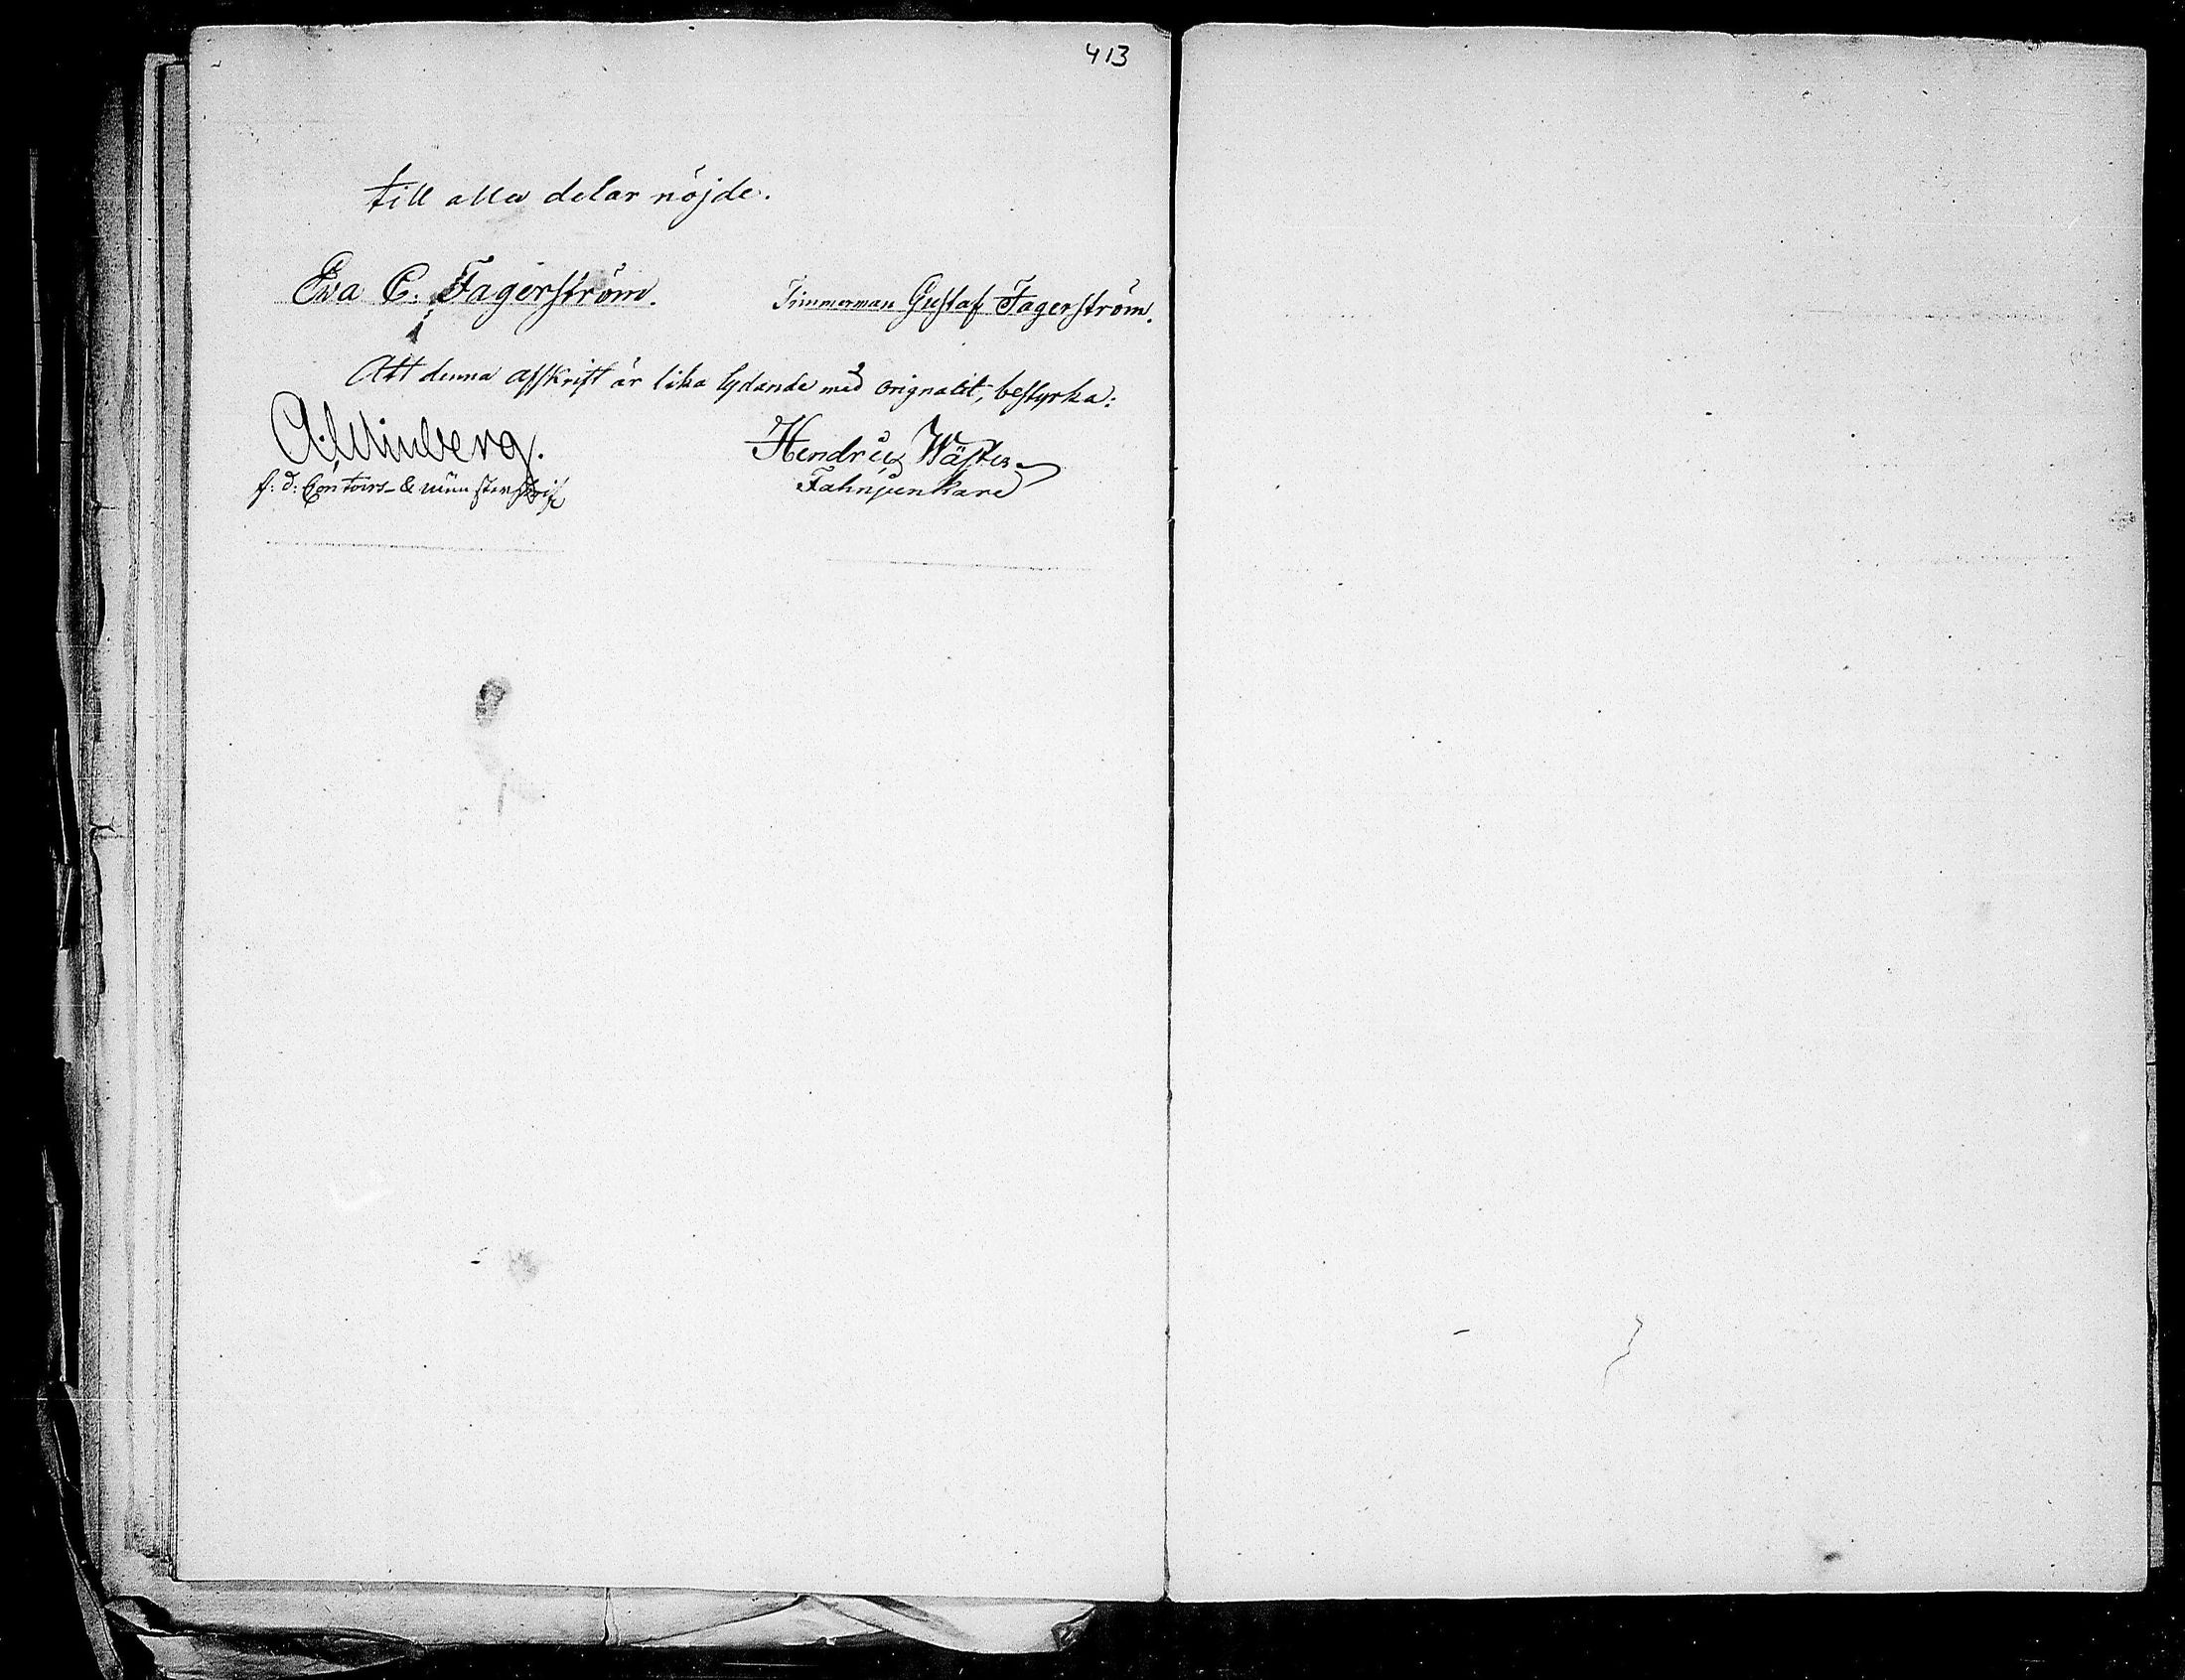 413
till alla delar nöjde.
Eva C. Fagerström. Timmerman Gustaf Fagerström.
Att denna afskrift är lika lydande med orignalet, bestyrka:
Hendric Wäster
f: d: Contoirs- & mönsterskrif Fahnjunkare